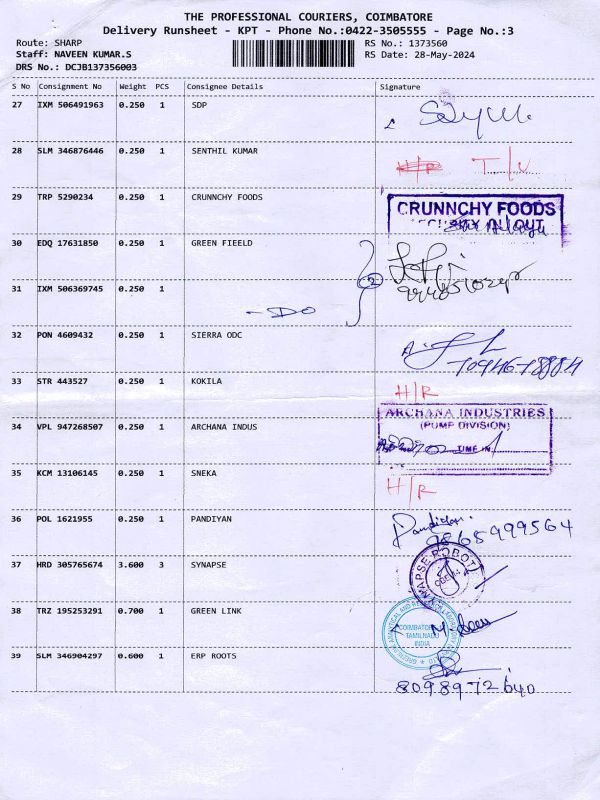 THE PROFESSIONAL COURIERS, COIMBATORE
Delivery Runsheet - KPT - Phone No.:0422-3505555 - Page No.:3
Route: SHARP RS No.: 1373560
Staff: NAVEEN KUMAR.S RS Date: 28-May-2024
DRS No.: DCJB137356003
S No Consignment No Weight PCS Consignee Details Signature
27 IXM 506491963 0.250 1 SDP
28 SLM 346876446 0.250 1 SENTHIL KUMAR
29 TRP 5290234 0.250 1 CRUNNCHY FOODS CRUNNCHY FOODS
30 EDQ 17631850 0.250 1 GREEN FIEELD
31 IXM 506369745 0.250 1 2
- DO
32 PON 4609432 0.250 1 SIERRA ODC
33 STR 443527 0.250 1 KOKILA H/R
34 VPL 947268507 0.250 1 ARCHANA INDUS ARCHANA INDUSTRIES
(PUMP DIVISION)
TIME IN
35 KCM 13106145 0.250 1 SNEKA H/R
36 POL 1621955 0.250 1 PANDIYAN Pandidan
9865999564
37 HRD 305765674 3.600 3 SYNAPSE
38 TRZ 195253291 0.700 1 GREEN LINK COIMBATORE
TAMILNADU
INDIA
39 SLM 346904297 0.600 1 ERP ROOTS
8098972640